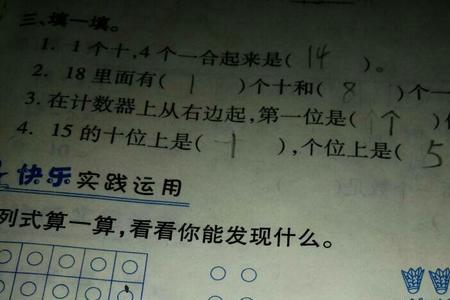 三、填一填。
1. 1个十,4个一合起来是( 14 )。
2. 18里面有( 1 )个十和( 8 )个一
3. 在计数器上从右边起,第一位是( 个 )
4. 15的十位上是( 1 ),个位上是( 5
快乐实践运用
列式算一算,看看你能发现什么。